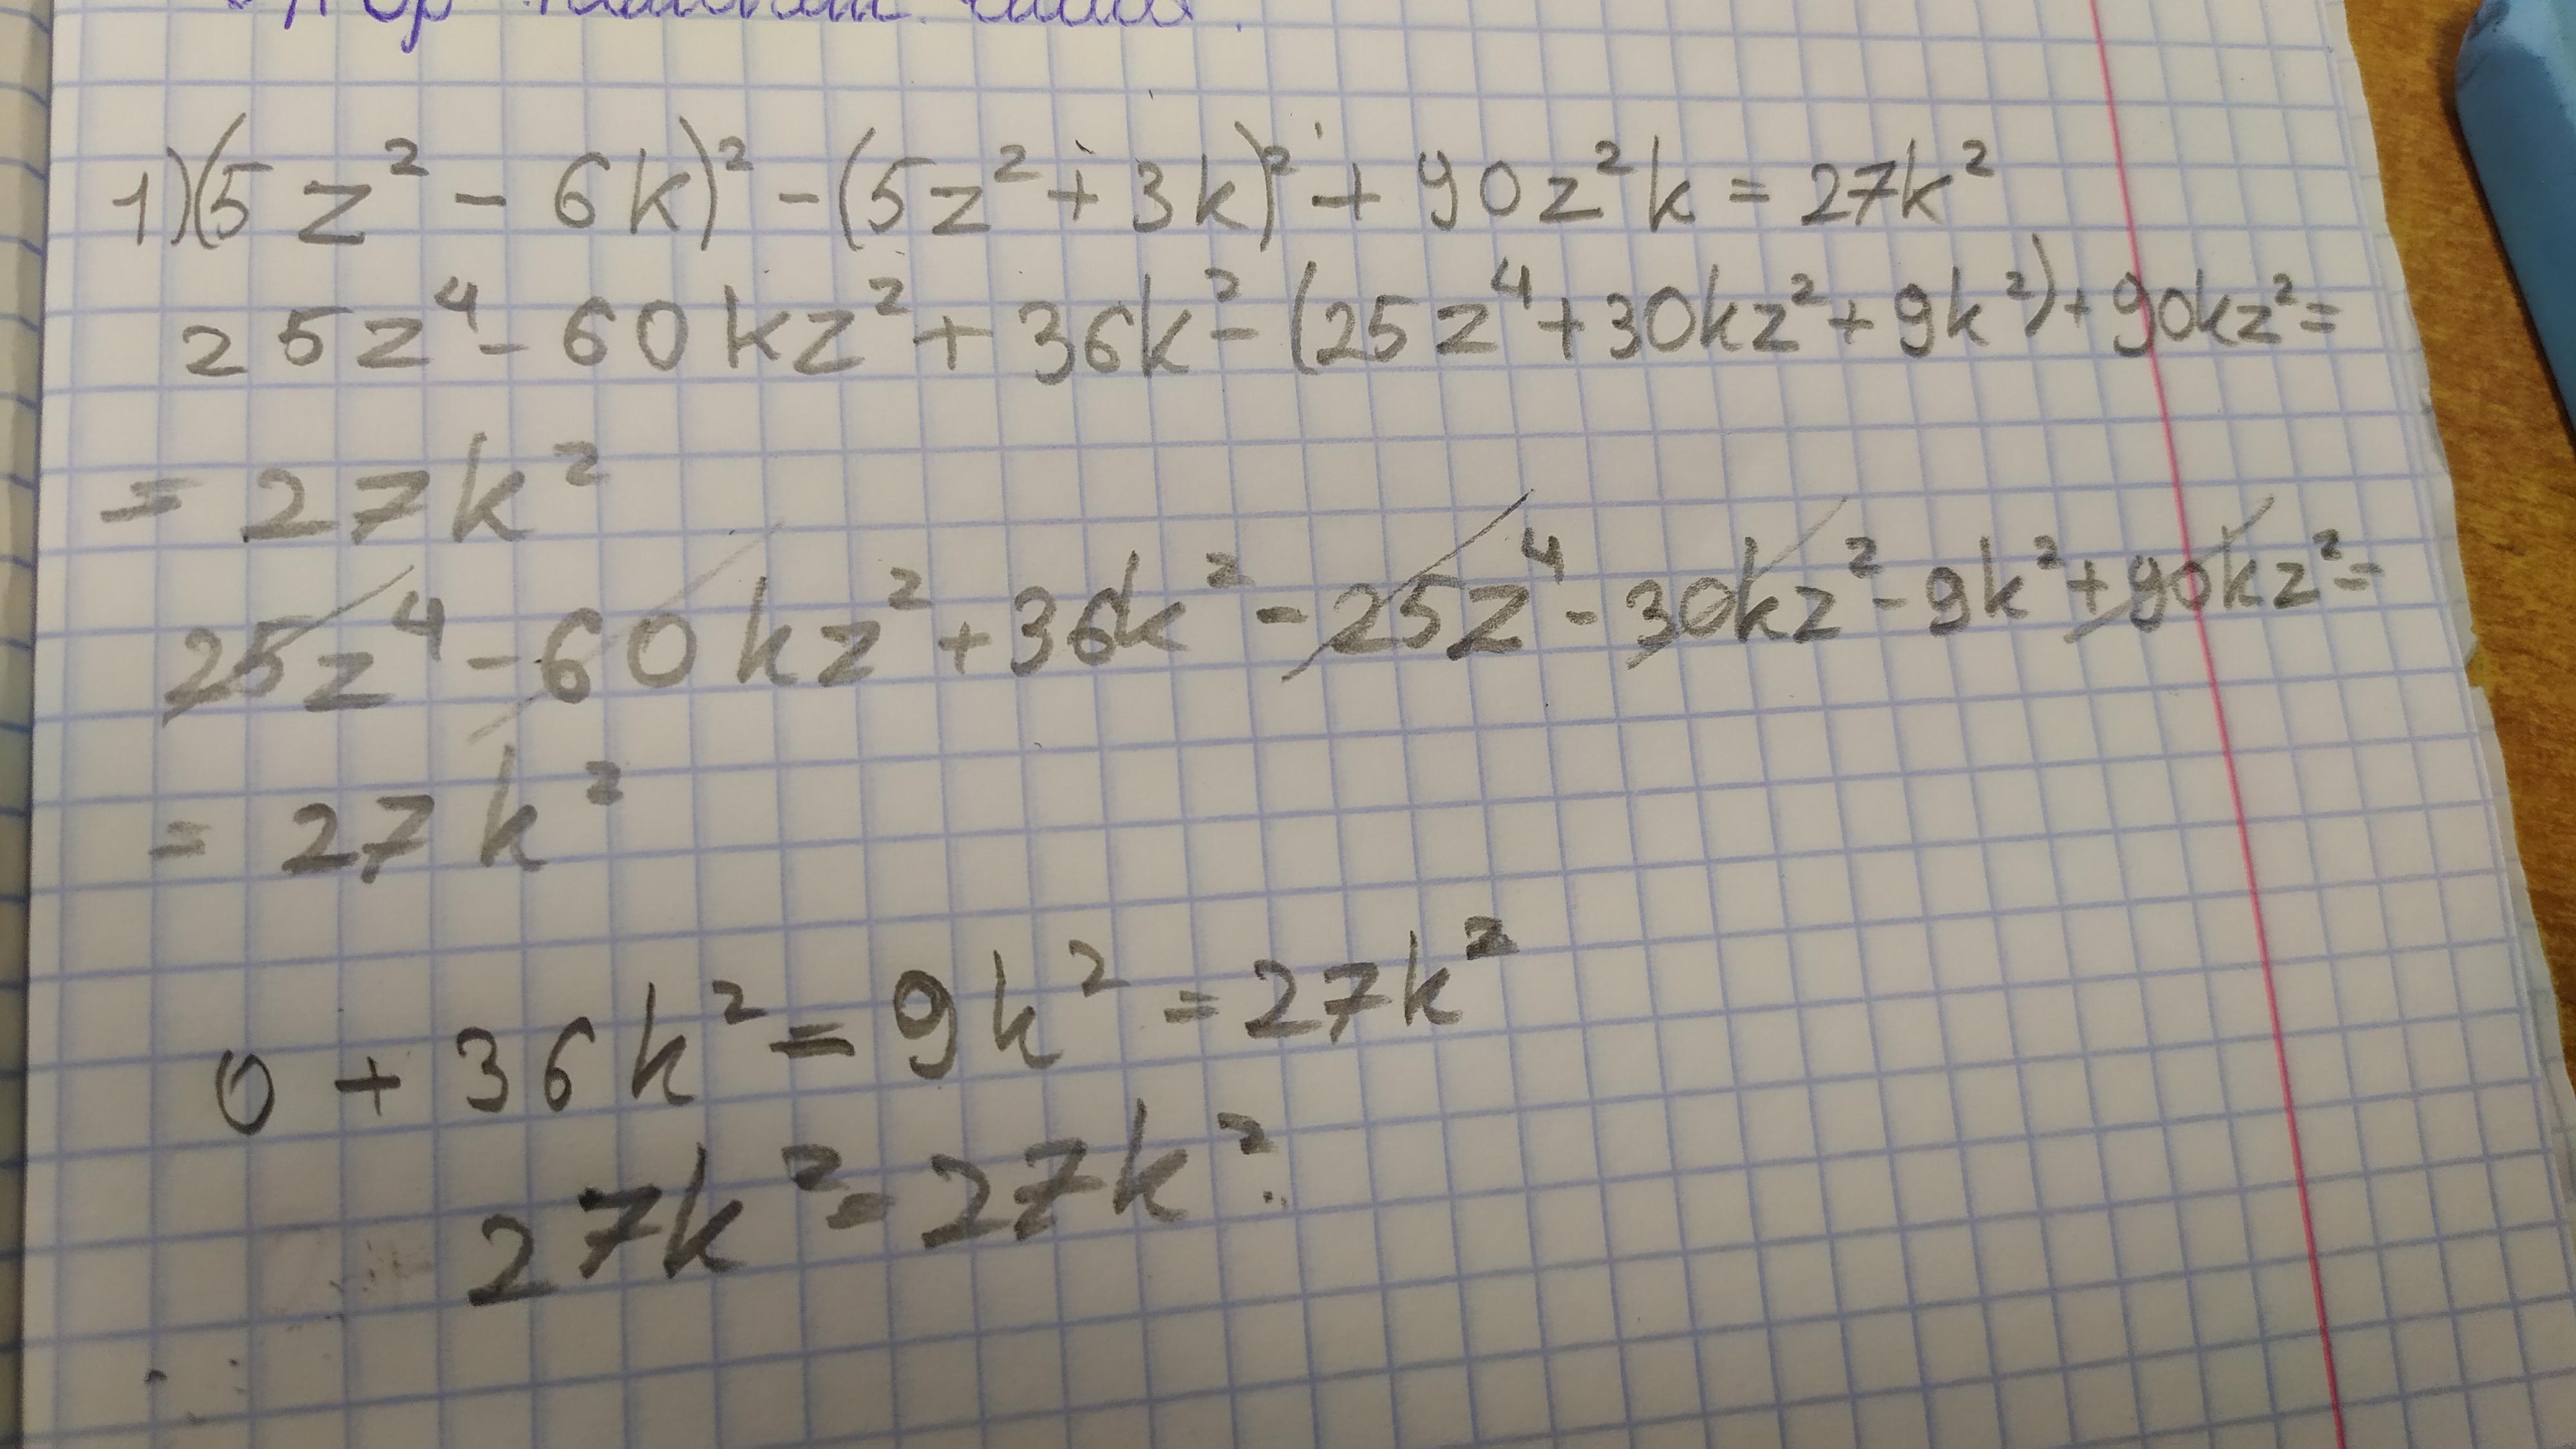 1) (5z² - 6k)² - (5z² + 3k)² + 90z²k = 27k²
25z⁴ - 60kz² + 36k² - (25z⁴ + 30kz² + 9k²) + 90kz² =
= 27k²
25z⁴ - 60kz² + 36k² - 25z⁴ - 30kz² - 9k² + 90kz² =
= 27k²
0 + 36k² = 9k² = 27k²
27k² = 27k².